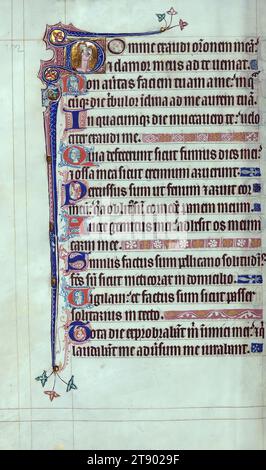 Domine exaudi oronem meā
& clamor meus ad te veniat.
Non avtas faciem tuam a me: in
die tribulor inclina ad me aurem tuam
In quacumque die invocavero te: velo
citer exaudi me.
Quia defecerunt sicut fumus dies mei:
& ossa mea sicut cremium aruerunt.
Percussus sum ut fenum & aruit cor
meum: oblitus sum panem meum
A voce gemitus mei: adhesit os meum
carni mee.
Similis factus sum pellicano solitud
sum sicut nicticorax in domicilio.
Vigilavi: et factus sum sicut passer
solitarius in tecto.
Tota die exprobrabant inimici mei: &
laudabant me adversum me iurabant.
alamy
Image ID: 2T9029F
www.alamy.com